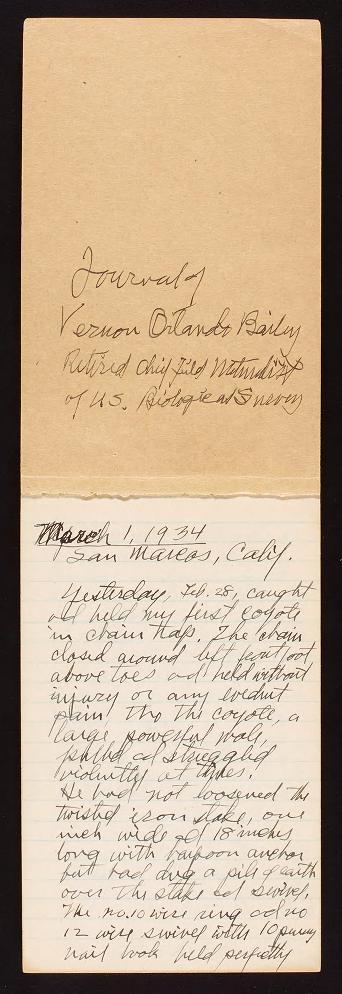 Journal of
Vernon Orlando Bailey
Retired Chief Field Naturalist
of U.S. Biological Survey
March 1, 1934
San Marcos, Calif.
Yesterday, Feb. 28, caught
ad held my first coyote
in chain trap. The chain
closed around left front foot
above toes ad held without
injury or any evident
pain, tho the coyote, a
large powerful male,
pulled ad struggled
violently at times.
He had not loosened the
twisted iron stake, one
inch wide ad 18 inches
long with harpoon anchor
but had dug a pile of earth
over the stake ad swivel.
The no. 10 wire ring ad no
12 wire swivel with 10 penny
nail hook held perfectly